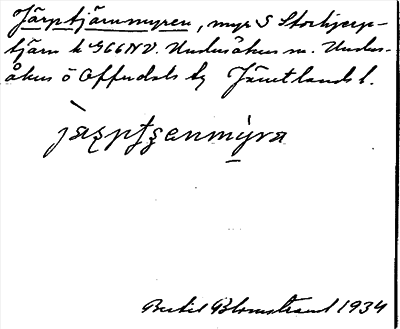 Järptjärnmyren, myr S Storhjerp-
tjärn k 9G6NV. Undersåkers sn. Unders-
åkers o Offerdals tg Jämtlands l.
Bertil Blomstrand 1934